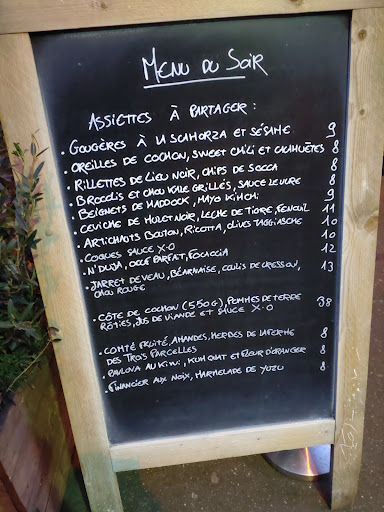 MENU DU SOIR
ASSIETTES À PARTAGER :
. GOUGÈRES À LA SCAMORZA ET SÉSAME 9
. OREILLES DE COCHON, SWEET CHILI ET CACAHUÈTES 8
. RILLETTES DE LIEU NOIR, CHIPS DE SOCCA 8
. BROCOLIS ET CHOU KALE GRILLÉS, SAUCE LEVURE 8
. BEIGNETS DE HADDOCK, MAYO KIMCHI 9
. CEVICHE DE MULET NOIR, LECHE DE TIGRE, FENOUIL 11
. ARTICHAUTS BOUTON, RICOTTA, OLIVES TAGGIASCHE 10
. COQUES SAUCE X.O 10
. N'DUJA, OEUF PARFAIT, FOCACCIA 12
. JARRET DE VEAU, BÉARNAISE, COULIS DE CRESSON, 13
CHOU ROUGE
. CÔTE DE COCHON (550G), POMMES DE TERRE 38
RÔTIES, JUS DE VIANDE ET SAUCE X.O
. COMTÉ FRUITÉ, AMANDES, HERBES DE LA FERME 8
DES TROIS PARCELLES
. PAVLOVA AU KIWI, KUMQUAT ET FLEUR D'ORANGER 8
. FINANCIER AUX NOIX, MARMELADE DE YUZU 8